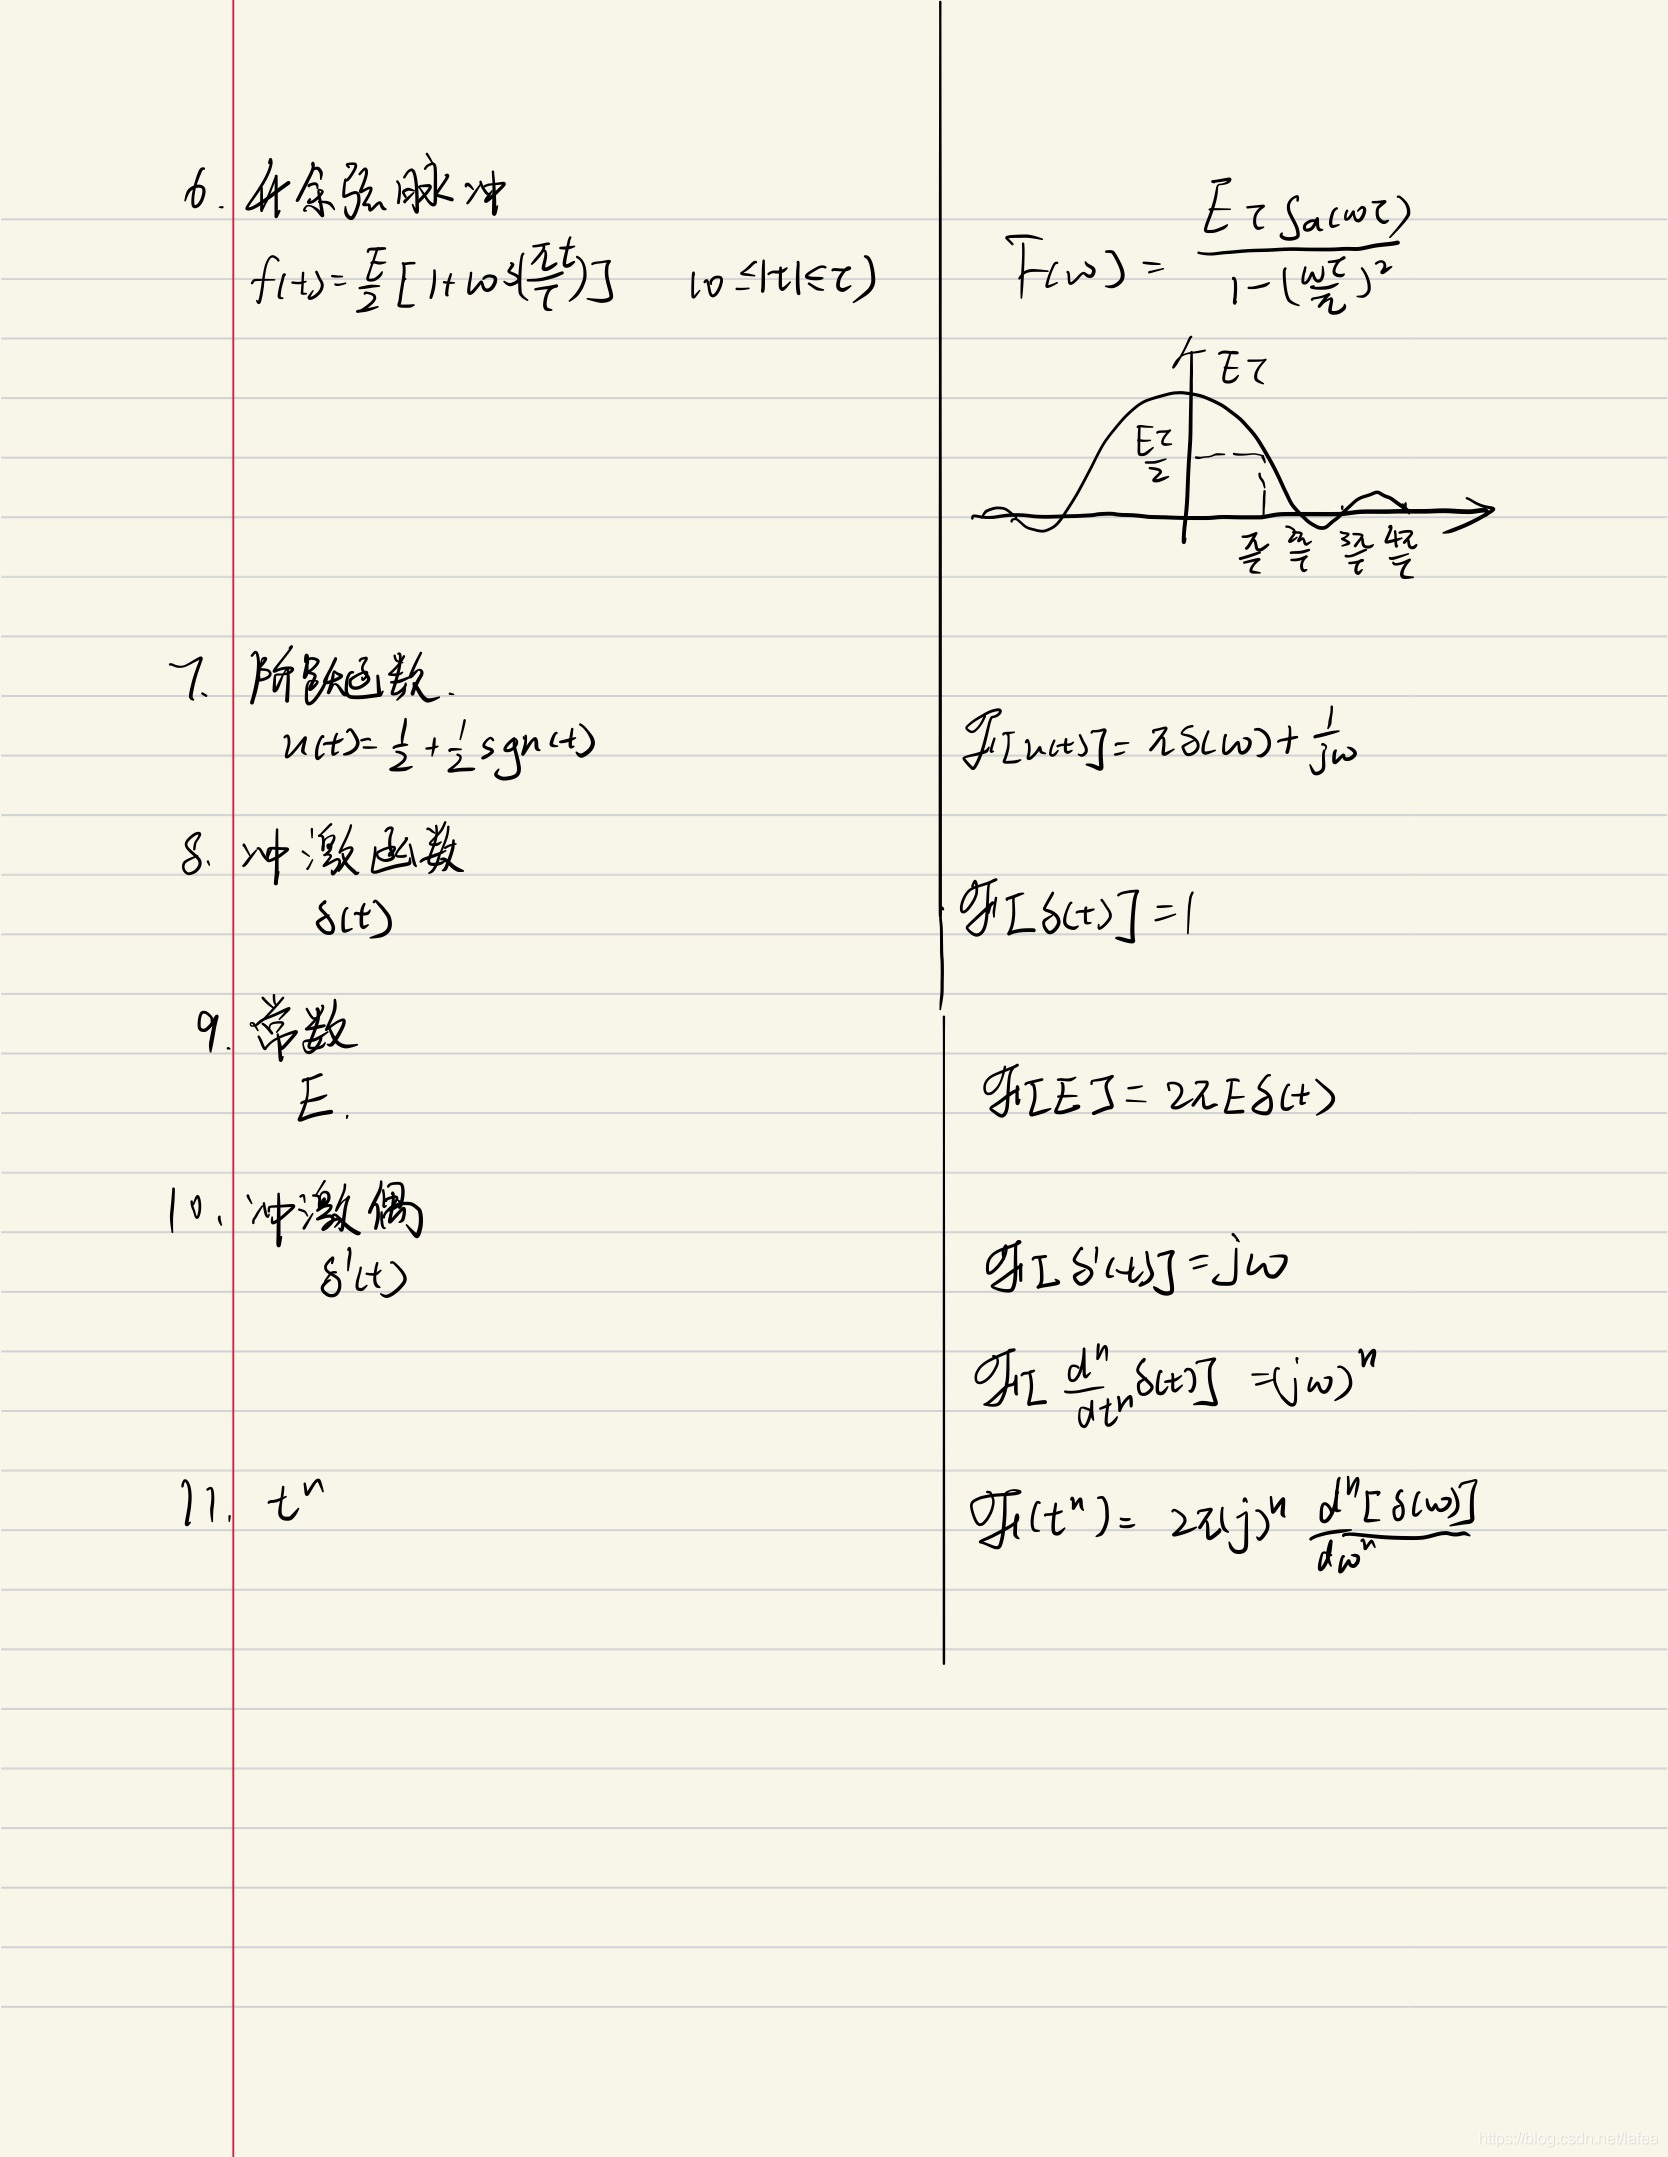 6. 升余弦脉冲
f(t)=E/2[1+cos(πt/τ)] (0≤|t|≤τ)
F(ω)= EτSa(ωτ) / 1-(ωτ/π)²
Eτ
Eτ/2
π/τ 2π/τ 3π/τ 4π/τ
7. 阶跃函数.
u(t)=1/2+1/2sgn(t)
ℱ[u(t)]=πδ(ω)+1/jω
8. 冲激函数
δ(t)
ℱ[δ(t)]=1
9. 常数
E.
ℱ[E]=2πEδ(t)
10. 冲激偶
δ'(t)
ℱ[δ'(t)]=jω
ℱ[dⁿ/dtⁿ δ(t)]=(jω)ⁿ
11. tⁿ
ℱ(tⁿ)=2π(j)ⁿ dⁿ[δ(ω)]/dωⁿ
https://blog.csdn.net/lafea